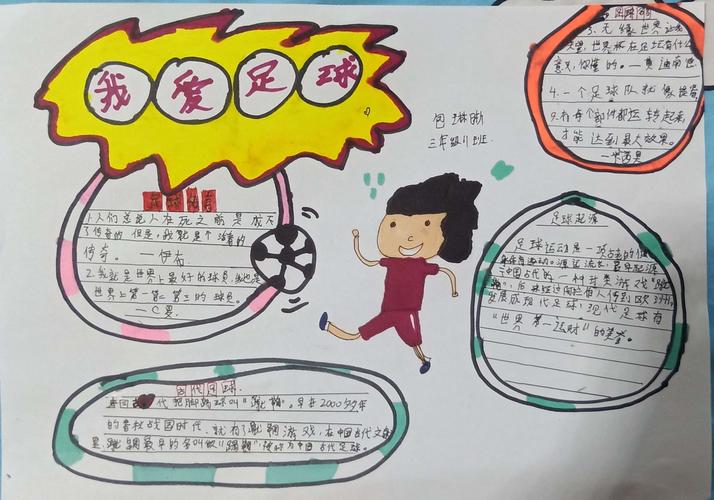 我爱足球
包琳晰
三年级11班
足球名言
1.人们总说人在死之前是成不
了传奇的但是,我就是个活着的
传奇。—伊布
2.我就是世界上最好的球员,我也是
世界上第一第二第三的球员。
—C罗
3.无缘世界
世界杯在足坛有什么
意义,你懂的。
4.一个足球队就像
有每个部件都运转起来,
才能达到最大效果。
足球起源
足球运动是一项古老的
中国古代的一种球类游戏"蹴
后来经过阿拉伯人传到欧洲,
发展成现代足球,现代足球有
"世界第一运动"的美誉。
古代足球
我国古代把脚踢球叫"蹴鞠",早在2000多年
的春秋战国时代,就有了蹴鞠游戏,在中国古代文
蹴鞠最早的名叫做"蹋鞠",被称为中国古代足球。